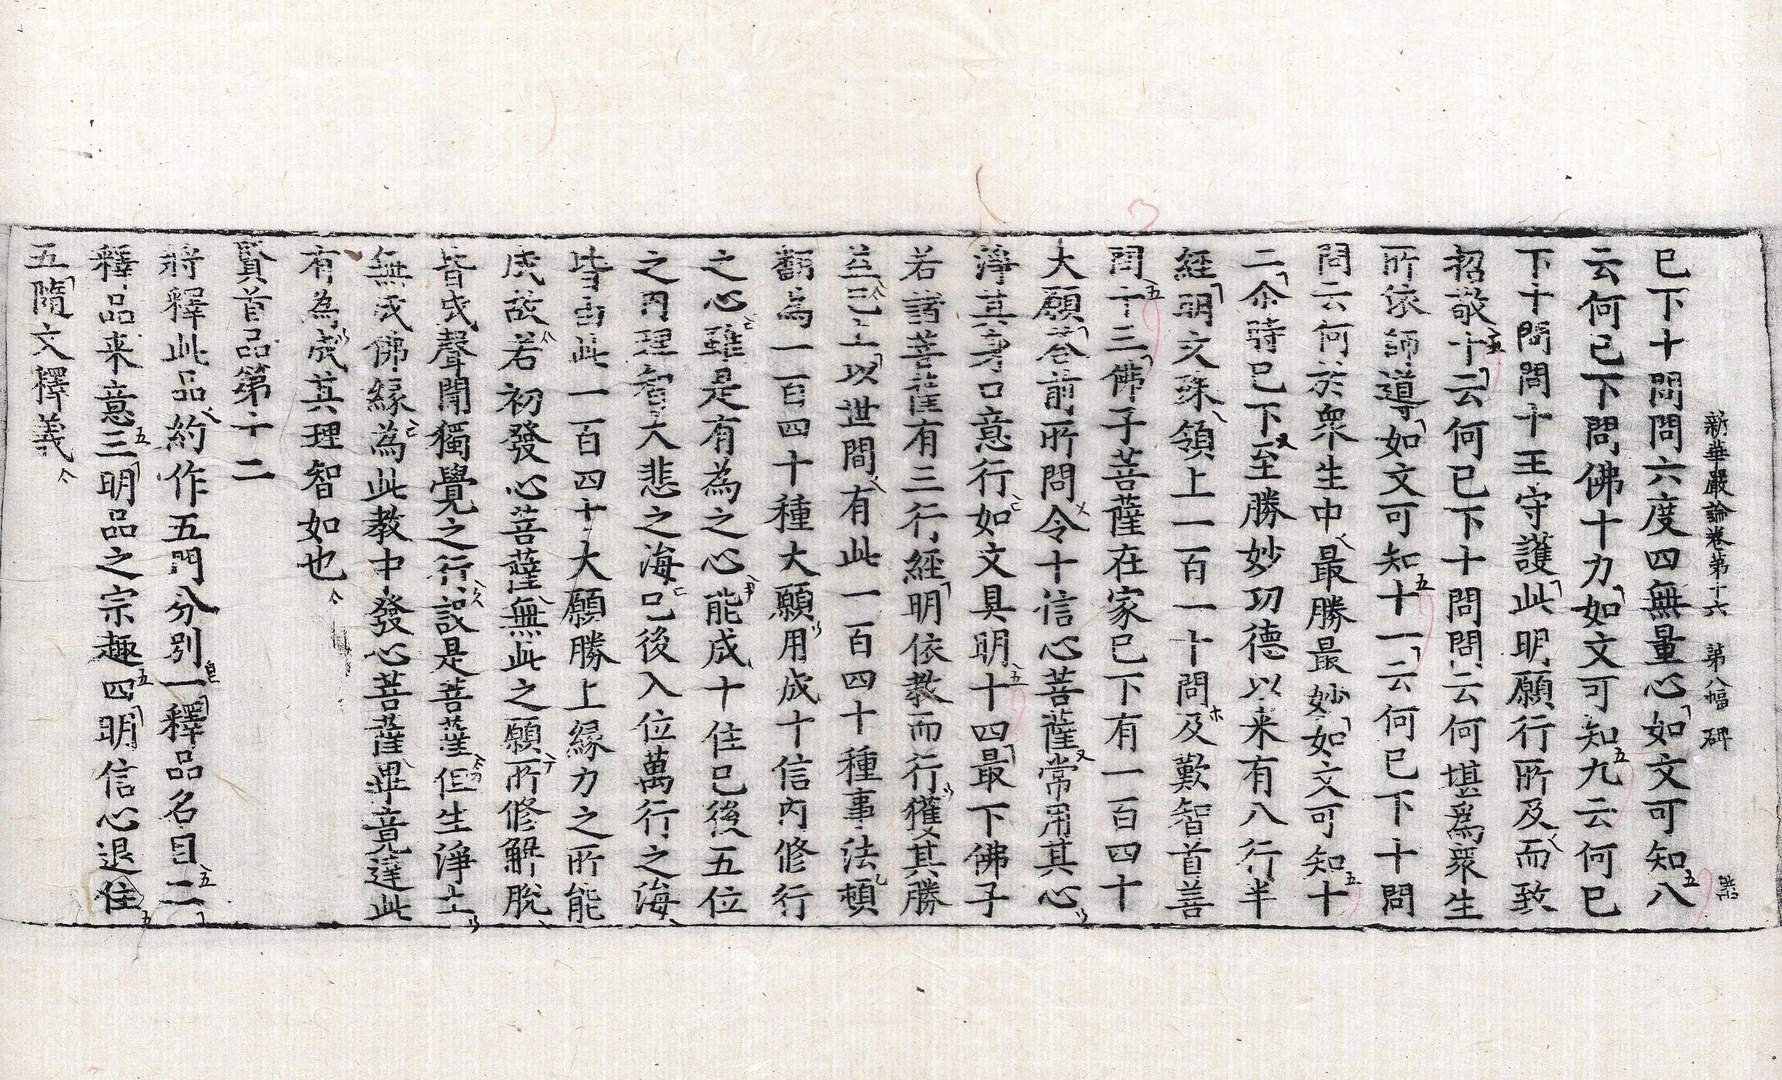 新華嚴論卷第十六　第八幅　碑
已下十問問六度四無量心如文可知八
云何已下問佛十力如文可知九云何已
下十問問十王守護此明願行所及而致
招敬十云何已下十問問云何堪為眾生
所依師導如文可知十一云何已下十問
問云何於眾生中最勝最妙如文可知十
二尒時已下至勝妙功德以来有八行半
經明文殊領上一百一十問及歎智首善
問十三佛子菩薩在家已下有一百四十
大願荅前所問令十信心菩薩常用其心
淨其身口意行如文具明十四最下佛子
若諸菩薩有三行經明依教而行獲其勝
益已上以世間有此一百四十種事法頓
翻為一百四十種大願用成十信內修行
之心雖是有為之心能成十住已後五位
之內理智大悲之海已後入位萬行之海
皆由此一百四十大願勝上緣力之所能
成故若初發心菩薩無此之願所修解脫
皆成聲聞獨覺之行設是菩薩但生淨土
無成佛緣為此教中發心菩薩畢竟達此
有為成其理智如也
賢首品第十二
將釋此品約作五門分別一釋品名目二
釋品来意三明品之宗趣四明信心退住
五隨文釋義